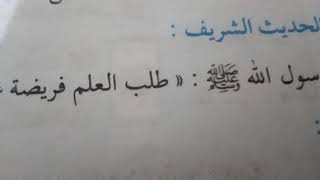 الحديث الشريف :
سول الله ﷺ : « طلب العلم فريضة
: